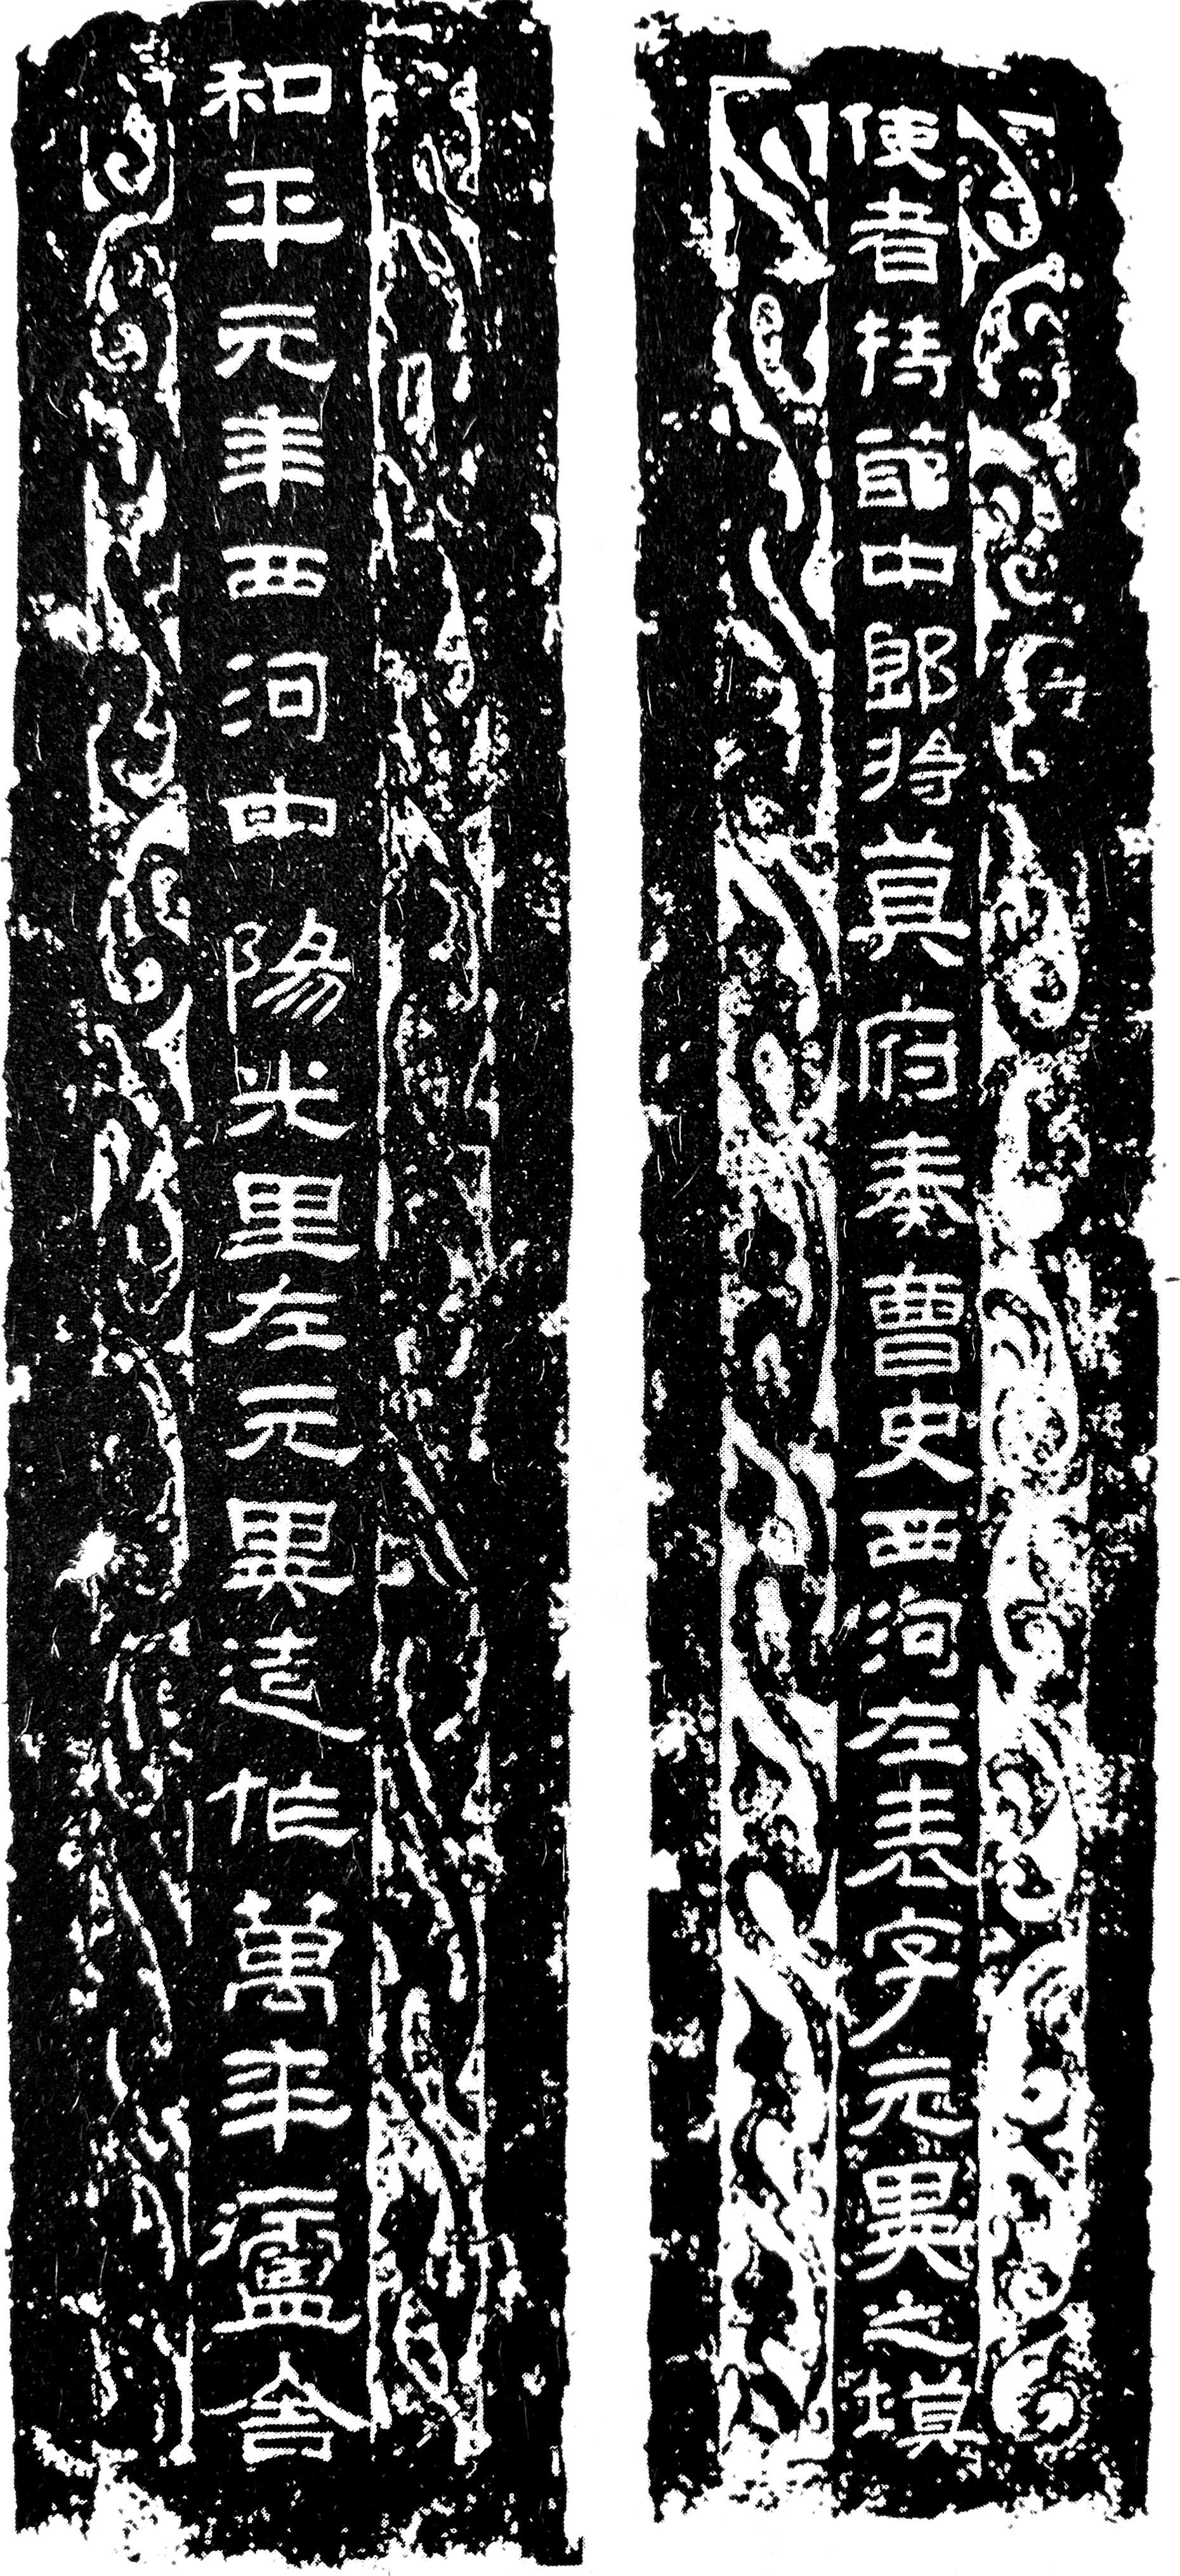 使者持節中郎將莫府奏曹史西河左表字元異之墓
和平元年西河中陽光里左元異造作萬年廬舍